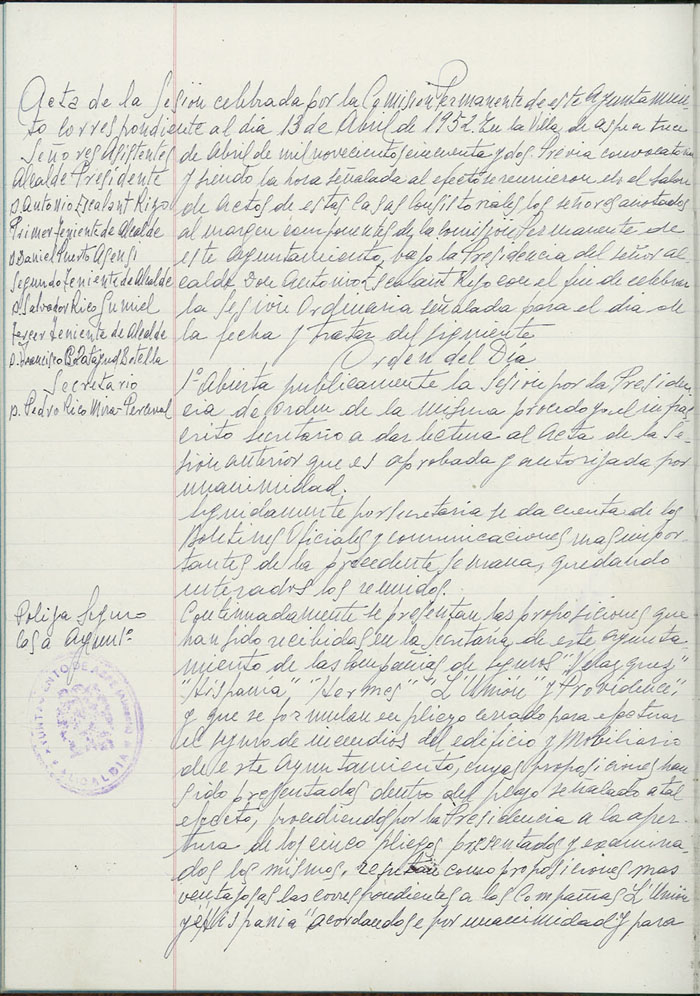 Acta de la Sesión celebrada por la Comisión Permanente de este Ayuntamien
to correspondiente al día 13 de Abril de 1952. En la Villa de aspe a trece
Señores Asistentes
Alcalde Presidente
D. Antonio Escalant Rizo
Primer Teniente de Alcalde
D. Daniel Puerto Asensi
Segundo Teniente de Alcalde
D. Salvador Rico Gumiel
Tercer Teniente de Alcalde
D. Francisco Botella
Secretario
D. Pedro Rico Mira-Perceval
de Abril de mil novecientos cincuenta y dos. Previa convocatoria
y siendo la hora señalada al efecto se reunieron en el Salon
de Actos de estas Casas Consistoriales los señores anotados
al margen componentes de la Comisión Permanente de
este Ayuntamiento, bajo la Presidencia del señor al-
calde Don Antonio Escalant Rizo con el fin de celebrar
la Sesión Ordinaria señalada para el día de
la fecha y tratar del siguiente
Orden del Día
1º Abierta publicamente la Sesión por la Presiden-
cia de orden de la misma procedo yo el infras
crito secretario a dar lectura al Acta de la Se-
sion anterior que es aprobada y autorizada por
unanimidad.
Seguidamente por secretaria se da cuenta de los
Boletines Oficiales y comunicaciones mas impor-
tantes de la precedente semana, quedando
enterados los reunidos.
Poliza Seguro
casa Ayuntº
Continuadamente se presentan las proposiciones que
han sido recibidas en la secretaria de este ayunta-
miento de las Compañias de seguros "Velazquez"
"Hispania" "Hermes" "L'Unión" y Providence",
y que se formulan en pliego cerrado para efectuar
el seguro de incendios del edificio y Mobiliario
de este Ayuntamiento, cuyas proposiciones han
sido presentadas dentro del plazo señalado a tal
efecto, procediendo por la Presidencia a la aper-
tura de los cinco pliegos presentados y examina-
dos los mismos, resultan como proposiciones mas
ventajosas las correspondientes a las Compañias L'Unión
y "Hispania" acordandose por unanimidad y para
AYUNTAMIENTO DE ASPE (Alicante)
ALCALDIA